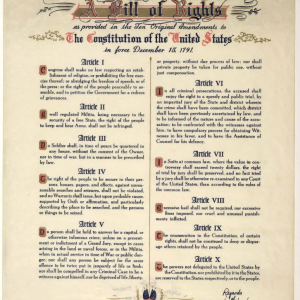 A Bill of Rights
as provided in the Ten Original Amendments to
The Constitution of the United States
in force December 15, 1791.
Article I
Congress shall make no law respecting an estab-
lishment of religion, or prohibiting the free exer-
cise thereof; or abridging the freedom of speech, or of
the press; or the right of the people peaceably to as-
semble, and to petition the Government for a redress
of grievances.
Article II
A well regulated Militia, being necessary to the
security of a free State, the right of the people
to keep and bear Arms, shall not be infringed.
Article III
No Soldier shall, in time of peace be quartered in
any house, without the consent of the Owner,
nor in time of war, but in a manner to be prescribed
by law.
Article IV
The right of the people to be secure in their per-
sons, houses, papers, and effects, against unrea-
sonable searches and seizures, shall not be violated,
and no Warrants shall issue, but upon probable cause,
supported by Oath or affirmation, and particularly
describing the place to be searched, and the persons
or things to be seized.
Article V
No person shall be held to answer for a capital, or
otherwise infamous crime, unless on a present-
ment or indictment of a Grand Jury, except in cases
arising in the land or naval forces, or in the Militia,
when in actual service in time of War or public dan-
ger; nor shall any person be subject for the same
offence to be twice put in jeopardy of life or limb;
nor shall be compelled in any Criminal Case to be a
witness against himself, nor be deprived of life, liberty,
or property, without due process of law; nor shall
private property be taken for public use, without
just compensation.
Article VI
In all criminal prosecutions, the accused shall
enjoy the right to a speedy and public trial, by
an impartial jury of the State and district wherein
the crime shall have been committed, which district
shall have been previously ascertained by law, and
to be informed of the nature and cause of the accu-
sation; to be confronted with the witnesses against
him; to have compulsory process for obtaining Wit-
nesses in his favor, and to have the Assistance of
Counsel for his defence.
Article VII
In Suits at common law, where the value in con-
troversy shall exceed twenty dollars, the right
of trial by jury shall be preserved, and no fact tried
by a jury shall be otherwise re-examined in any Court
of the United States, than according to the rules of
the common law.
Article VIII
Excessive bail shall not be required, nor excessive
fines imposed, nor cruel and unusual punishments
inflicted.
Article IX
The enumeration in the Constitution, of certain
rights, shall not be construed to deny or dispar-
age others retained by the people.
Article X
The powers not delegated to the United States by
the Constitution, nor prohibited by it to the States,
are reserved to the States respectively, or to the people.